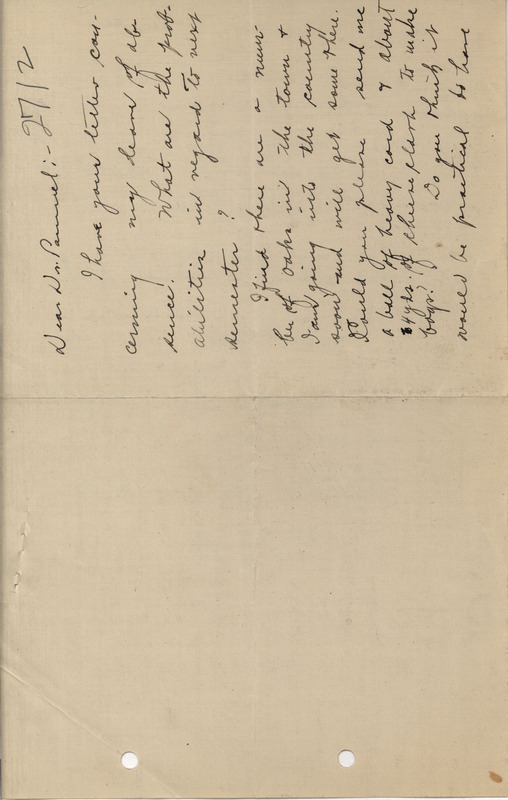 2712
Dear Dr. Pammel:-
I have your letter con-
cerning my leave of ab-
sence. What are the prob-
abilities in regard to next
semester?
I find there are a num-
ber of oaks in the town &
I am going into the country
soon and will get some there.
Would you please send me
a ball of heavy cord & about
4 yds. of cheese cloth to make
bags? Do you think it
would be practical to have